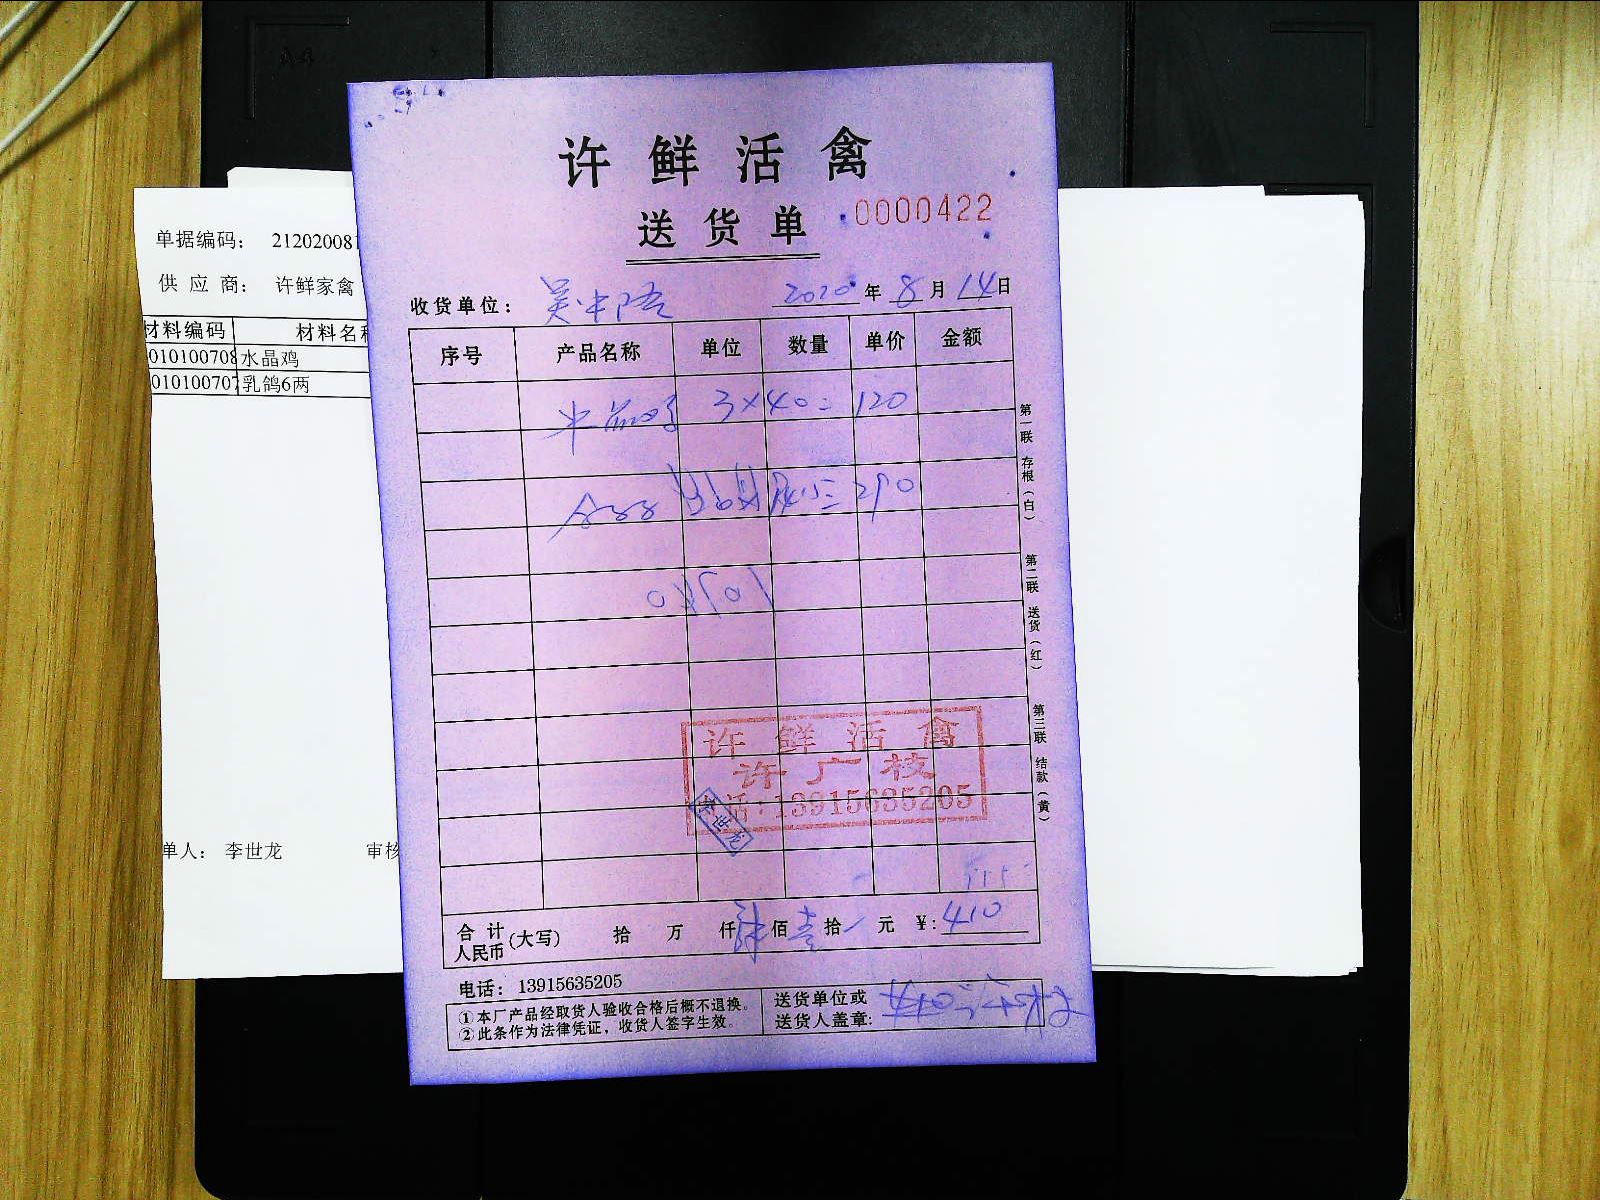 许鲜活禽
送货单 0000422
单据编码： 212020081
供应商： 许鲜家禽
材料编码 材料名称
010100708 水晶鸡
010100707 乳鸽6两
单人： 李世龙 审核
收货单位： 2020年8月14日
序号 产品名称 单位 数量 单价 金额
3×40=120
=290
许鲜活禽
许广枝
电话：13915635205
李世龙
合计人民币(大写) 拾 万 仟 佰壹拾 元 ¥: 410
电话： 13915635205
①本厂产品经取货人验收合格后概不退换。
②此条作为法律凭证，收货人签字生效。
送货单位或
送货人盖章:
第一联 存根（白）
第二联 送货（红）
第三联 结款（黄）